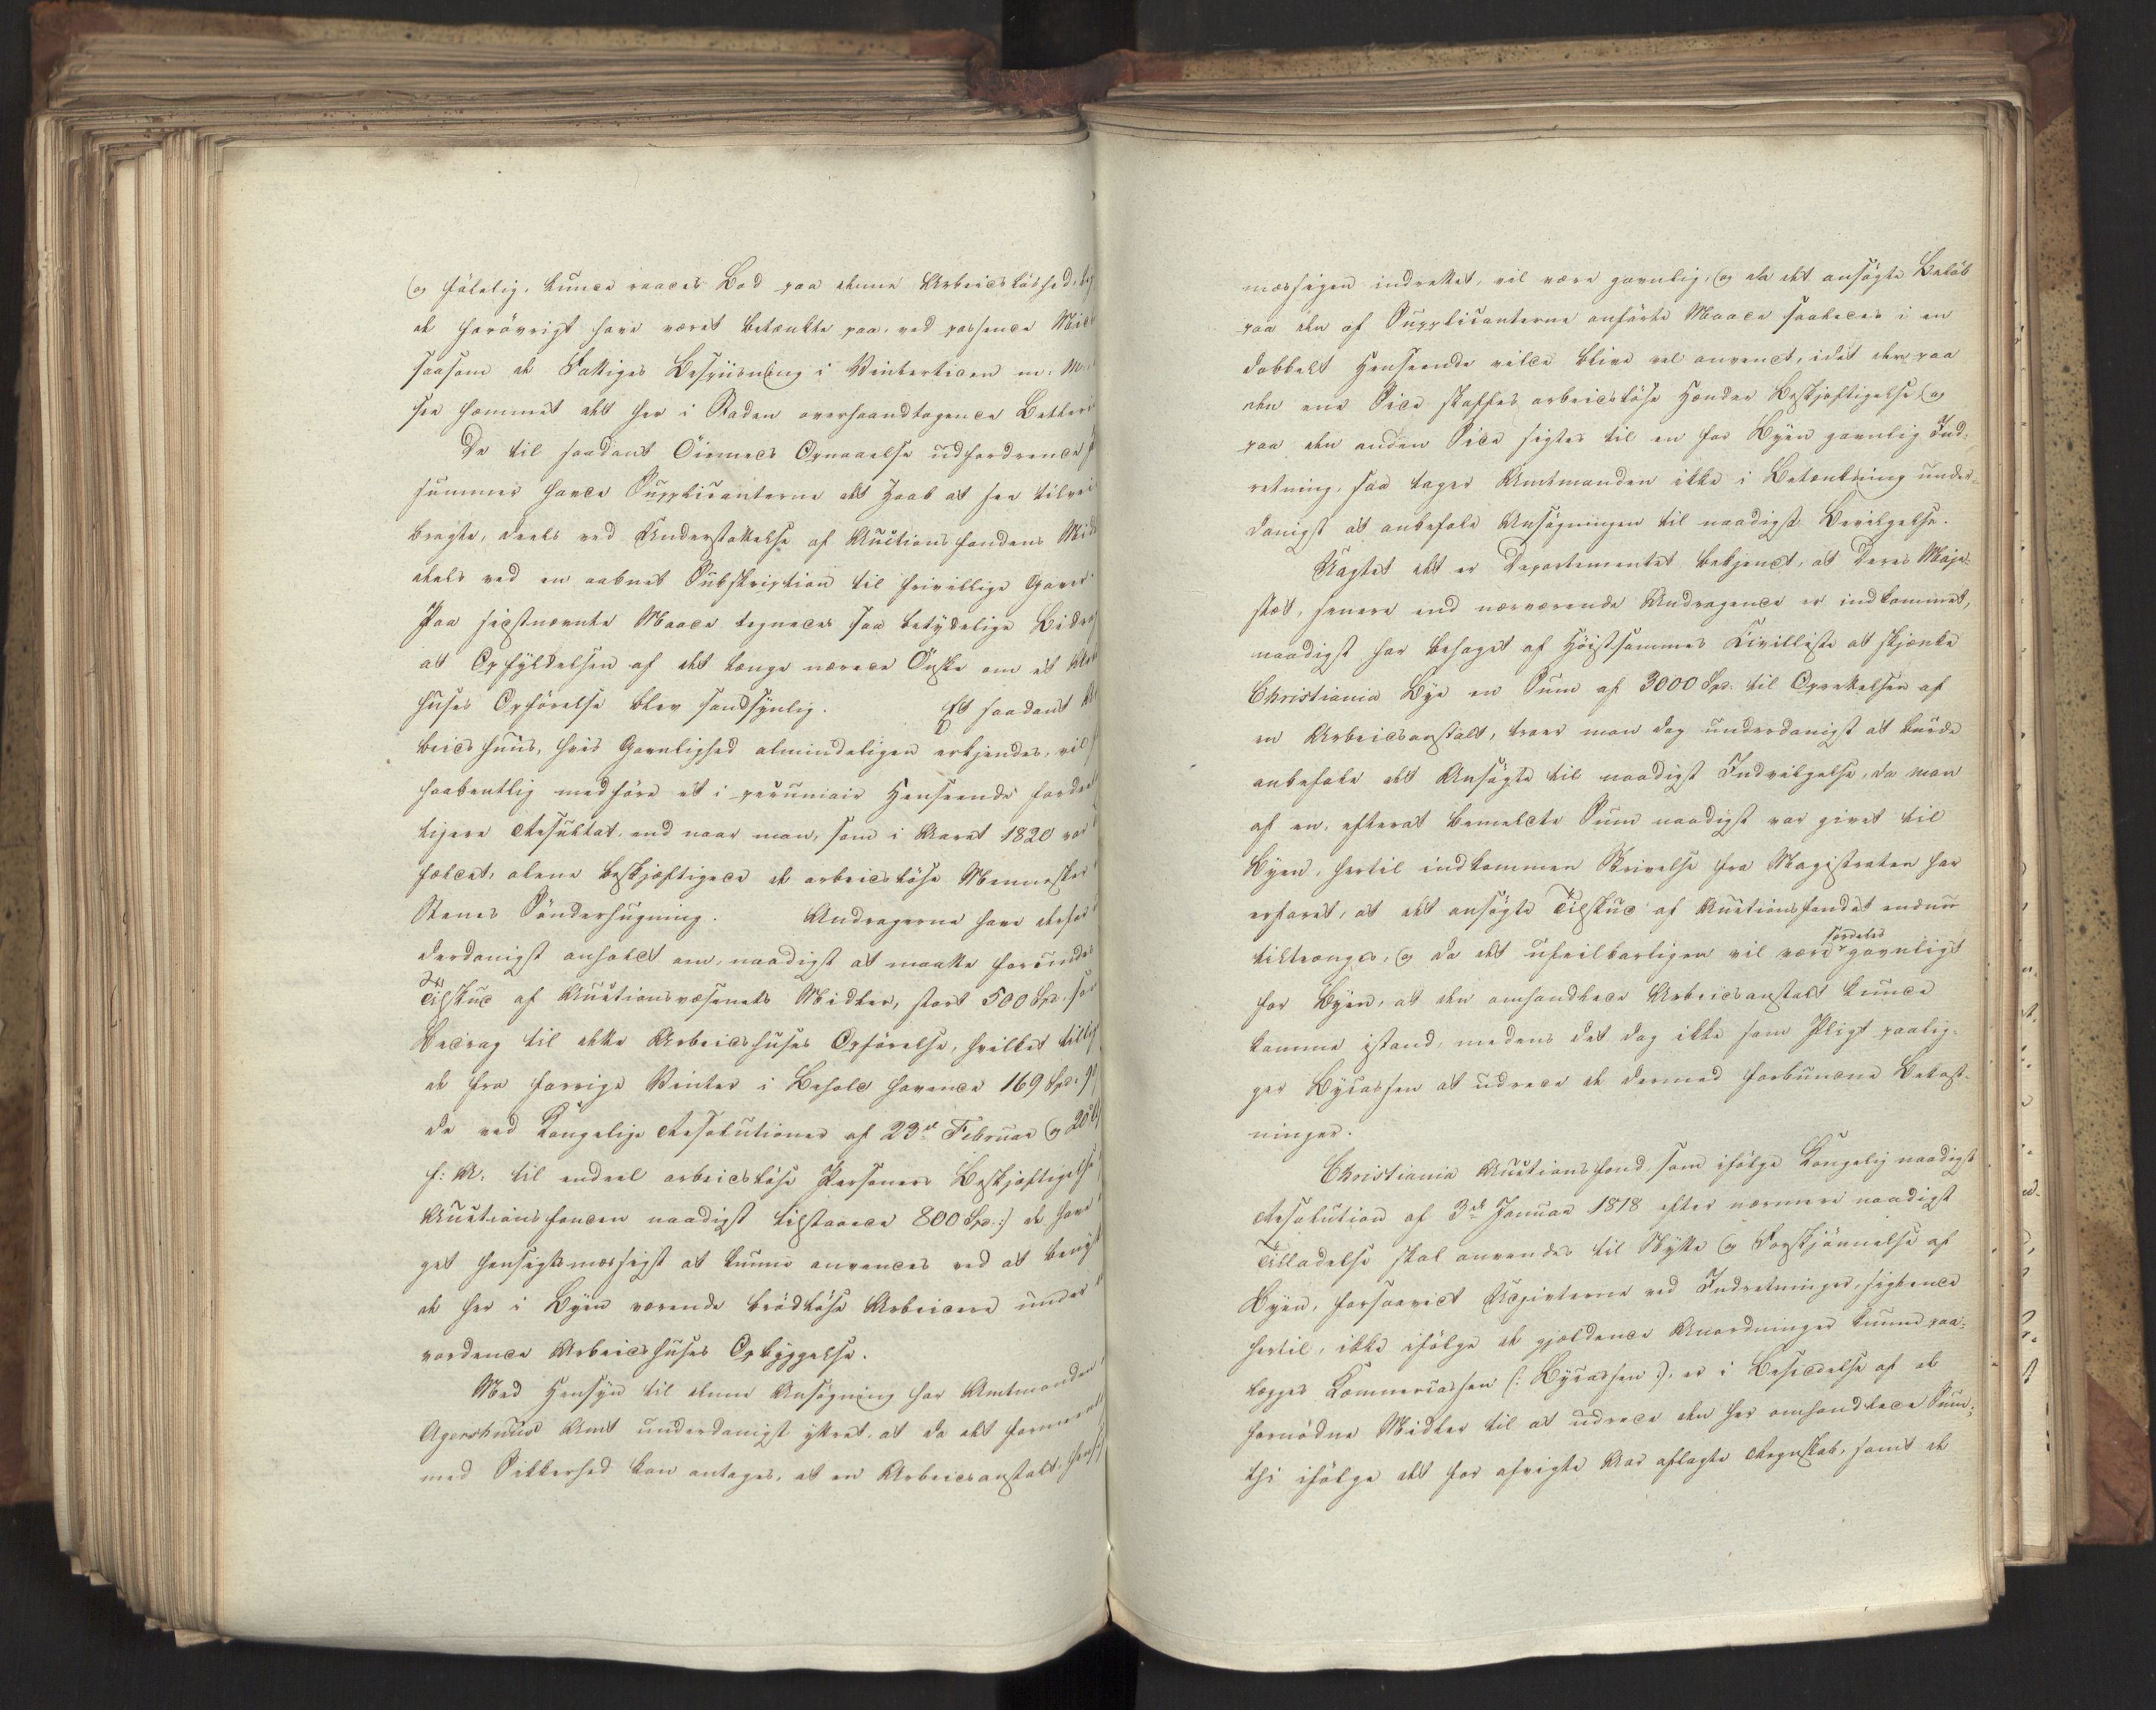 og følelig, kunde raades Bod paa denne Arbeidsløshed,
de forøvrigt have været betænkte paa, ved passende
saasom de Fattiges Bespiisning i Vintertiden m: M:
see hæmmet det her i Staden overhaandtagende
De til saadant Øiemeds Opnaaelse udfordrende
Summer havde Supplicanterne det Haab at see
bragte, deels ved Understøttelse af Auctionsfondens
deels ved en aabnet Subskription til frivillige Gaver.
Paa sidstnævnte Maade tegnedes saa betydelige Bidrag
at Opfyldelsen af det længe nærede Ønske om et
huses Opførelse blev sandsynlig. Et saadant
beidshuus, hvis Gavnlighed almindeligen erkjendes, vil
haabentlig medføre et i pecuniair Henseende
ligere Resultat, end naar man, som i Aaret 1820 var
fældet, alene beskjæftigede de arbeidsløse Mennesker
Stenes Sönderhugning. Andragerne have derfor
derdanigst anholdt om, naadigst at maatte forundes
Tilskud af Auctionsvæsenets Midler, stort 500 Spd.
Bidrag til dette Arbeidshuses Opførelse, hvilket
de fra forrige Vinter i Behold havende 169 Spd.
da ved Kongelige Resolutioner af 23de Februar og 20de
f: A. til endeel arbeidsløse Personers Beskjæftigelse
Auctionsfonden naadigst tilstaaede 800 Spd:) de have
get hensigtsmæssigst at kunne anvendes ved at
de her i Byen værende brødløse Arbeidere under
vordende Arbeidshuses Opbyggelse.
Med Hensyn til denne Ansøgning har Amtmanden
Agershuus Amt underdanigst yttret, at da det
med Sikkerhed kan antages, at en Arbeidsanstalt,
mæssigen indrettet, vil være gavnlig, og da det ansøgte Beløb
paa den af Supplicanterne anførte Maade saaledes i en
dobbelt Henseende vilde blive vel anvendt, idet der paa
den ene Side skaffes arbeidsløse Hænder Beskjæftigelse og
paa den anden Side sigtes til en for Byen gavnlig Ind-
retning, saa tager Amtmanden ikke i Betænkning under-
danigst at anbefale Ansøgningen til naadigst Bevilgelse.
Uagtet det er Departementet bekjendt, at Deres Maje-
stæt, senere end nærværende Andragende er indkommet,
naadigst har behaget af Høistsammes Civilliste at skjænke
Christiania Bye en Sum af 3000 Spd. til Oprettelsen af
en Arbeidsanstalt, troer man dog underdanigst at burde
anbefale det Ansøgte til naadigst Indvilgelse, da man
af en, efterat bemeldte Sum naadigst var givet til
Byen, hertil indkommen Skrivelse fra Magistraten har
erfaret, at det ansøgte Tilskud af Auctionsfondet endnu
tiltrænges, og da det ufeilbarligen vil være særdeles gavnligt
for Byen, at den omhandlede Arbeidsanstalt kunde
komme istand, medens det dog ikke som Pligt paalig-
ger Bycassen at udrede de dermed forbundne Bekost-
ninger.
Christiania Auctionsfond, som ifølge Kongelig naadigst
Resolution af 3de Januar 1818 efter nærmere naadigst
Tilladelse skal anvendes til Nytte og Forskjønnelse af
Byen, forsaavidt Udgivterne ved Indretninger, sigtende
hertil, ikke ifølge de gjældende Anordninger kunne paa-
lægges Kæmnercassen (: Bycassen :), er i Besiddelse af de
fornødne Midler til at udrede den her omhandlede Sum;
thi ifølge det for afvigte Aar aflagte Regnskab, samt de